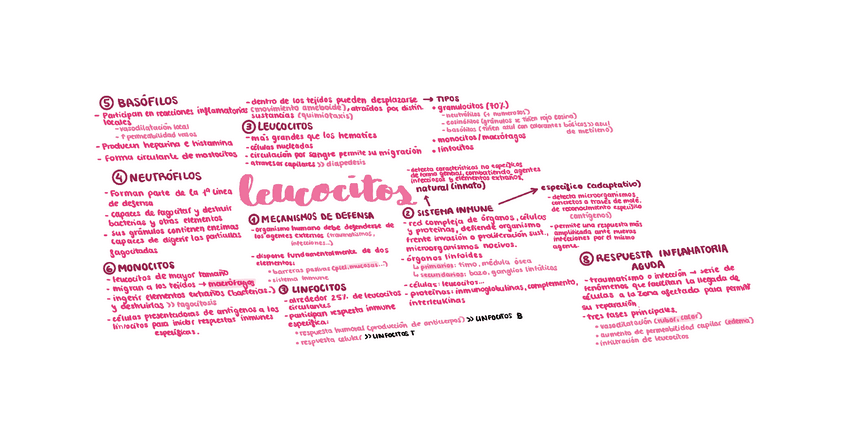 leucocitos
① MECANISMOS DE DEFENSA
- organismo humano debe defenderse de
los agentes externos (traumatismos,
infecciones...)
- dispone fundamentalmente de dos
elementos:
* barreras pasivas (piel, mucosas...)
* sistema inmune
② SISTEMA INMUNE
- red compleja de órganos, células
y proteínas, defiende organismo
frente invasión o proliferación sust.
microorganismos nocivos.
- órganos linfoides
↳ primarios: timo, médula ósea
↳ secundarios: bazo, ganglios linfáticos
- células: leucocitos...
- proteínas: inmunoglobulinas, complemento,
interleukinas
natural (innato)
- detecta características no específicas
de forma general, combatiendo agentes
infecciosos y elementos extraños.
específico (adaptativo)
- detecta microorganismos
concretos a través de molé.
de reconocimiento específico
(antígenos)
- permite una respuesta más
amplificada ante nuevas
infecciones por el mismo
agente.
③ LEUCOCITOS
- más grandes que los hematíes
- células nucleadas
- circulación por sangre permite su migración
- atravesar capilares >> diapédesis
- dentro de los tejidos pueden desplazarse
(movimiento ameboide), atraídos por distin.
sustancias (quimiotaxis)
→ TIPOS
* granulocitos (70%)
- neutrófilos (+ numerosos)
- eosinófilos (gránulos se tiñen roja eosina)
- basófilos (tiñen azul con colorantes básicos >> azul
de metileno)
* monocitos/macrófagos
* linfocitos
④ NEUTRÓFILOS
- Forman parte de la 1ª línea
de defensa
- capaces de fagocitar y destruir
bacterias y otros elementos
- sus gránulos contienen enzimas
capaces de digerir las partículas
fagocitadas
⑤ BASÓFILOS
- Participan en reacciones inflamatorias
locales
- vasodilatación local
- ↑ permeabilidad vasos
- Producen heparina e histamina
- Forma circulante de mastocitos
⑥ MONOCITOS
- leucocitos de mayor tamaño
- migran a los tejidos → macrófagos
- ingerir elementos extraños (bacterias..)
y destruirlas >> fagocitosis
- células presentadoras de antígenos a los
linfocitos para iniciar respuestas inmunes
específicas.
LINFOCITOS
- alrededor 25% de leucocitos
circulantes
- participan respuesta inmune
específica:
* respuesta humoral (producción de anticuerpos) >> LINFOCITOS B
* respuesta celular >> LINFOCITOS T
⑧ RESPUESTA INFLAMATORIA
AGUDA
- traumatismo o infección → serie de
fenómenos que facilitan la llegada de
células a la zona afectada para permitir
su reparación.
- tres fases principales.
* vasodilatación (rubor, calor)
* aumento de permeabilidad capilar (edema)
* infiltración de leucocitos